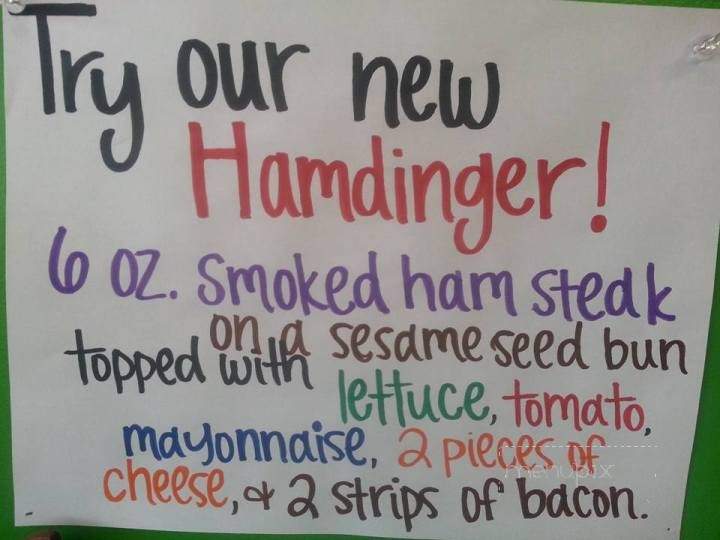 Try our new
Hamdinger!
6 oz. smoked ham steak
on a sesame seed bun
topped with
lettuce, tomato,
mayonnaise, 2 pieces of
cheese, & 2 strips of bacon.
menupix